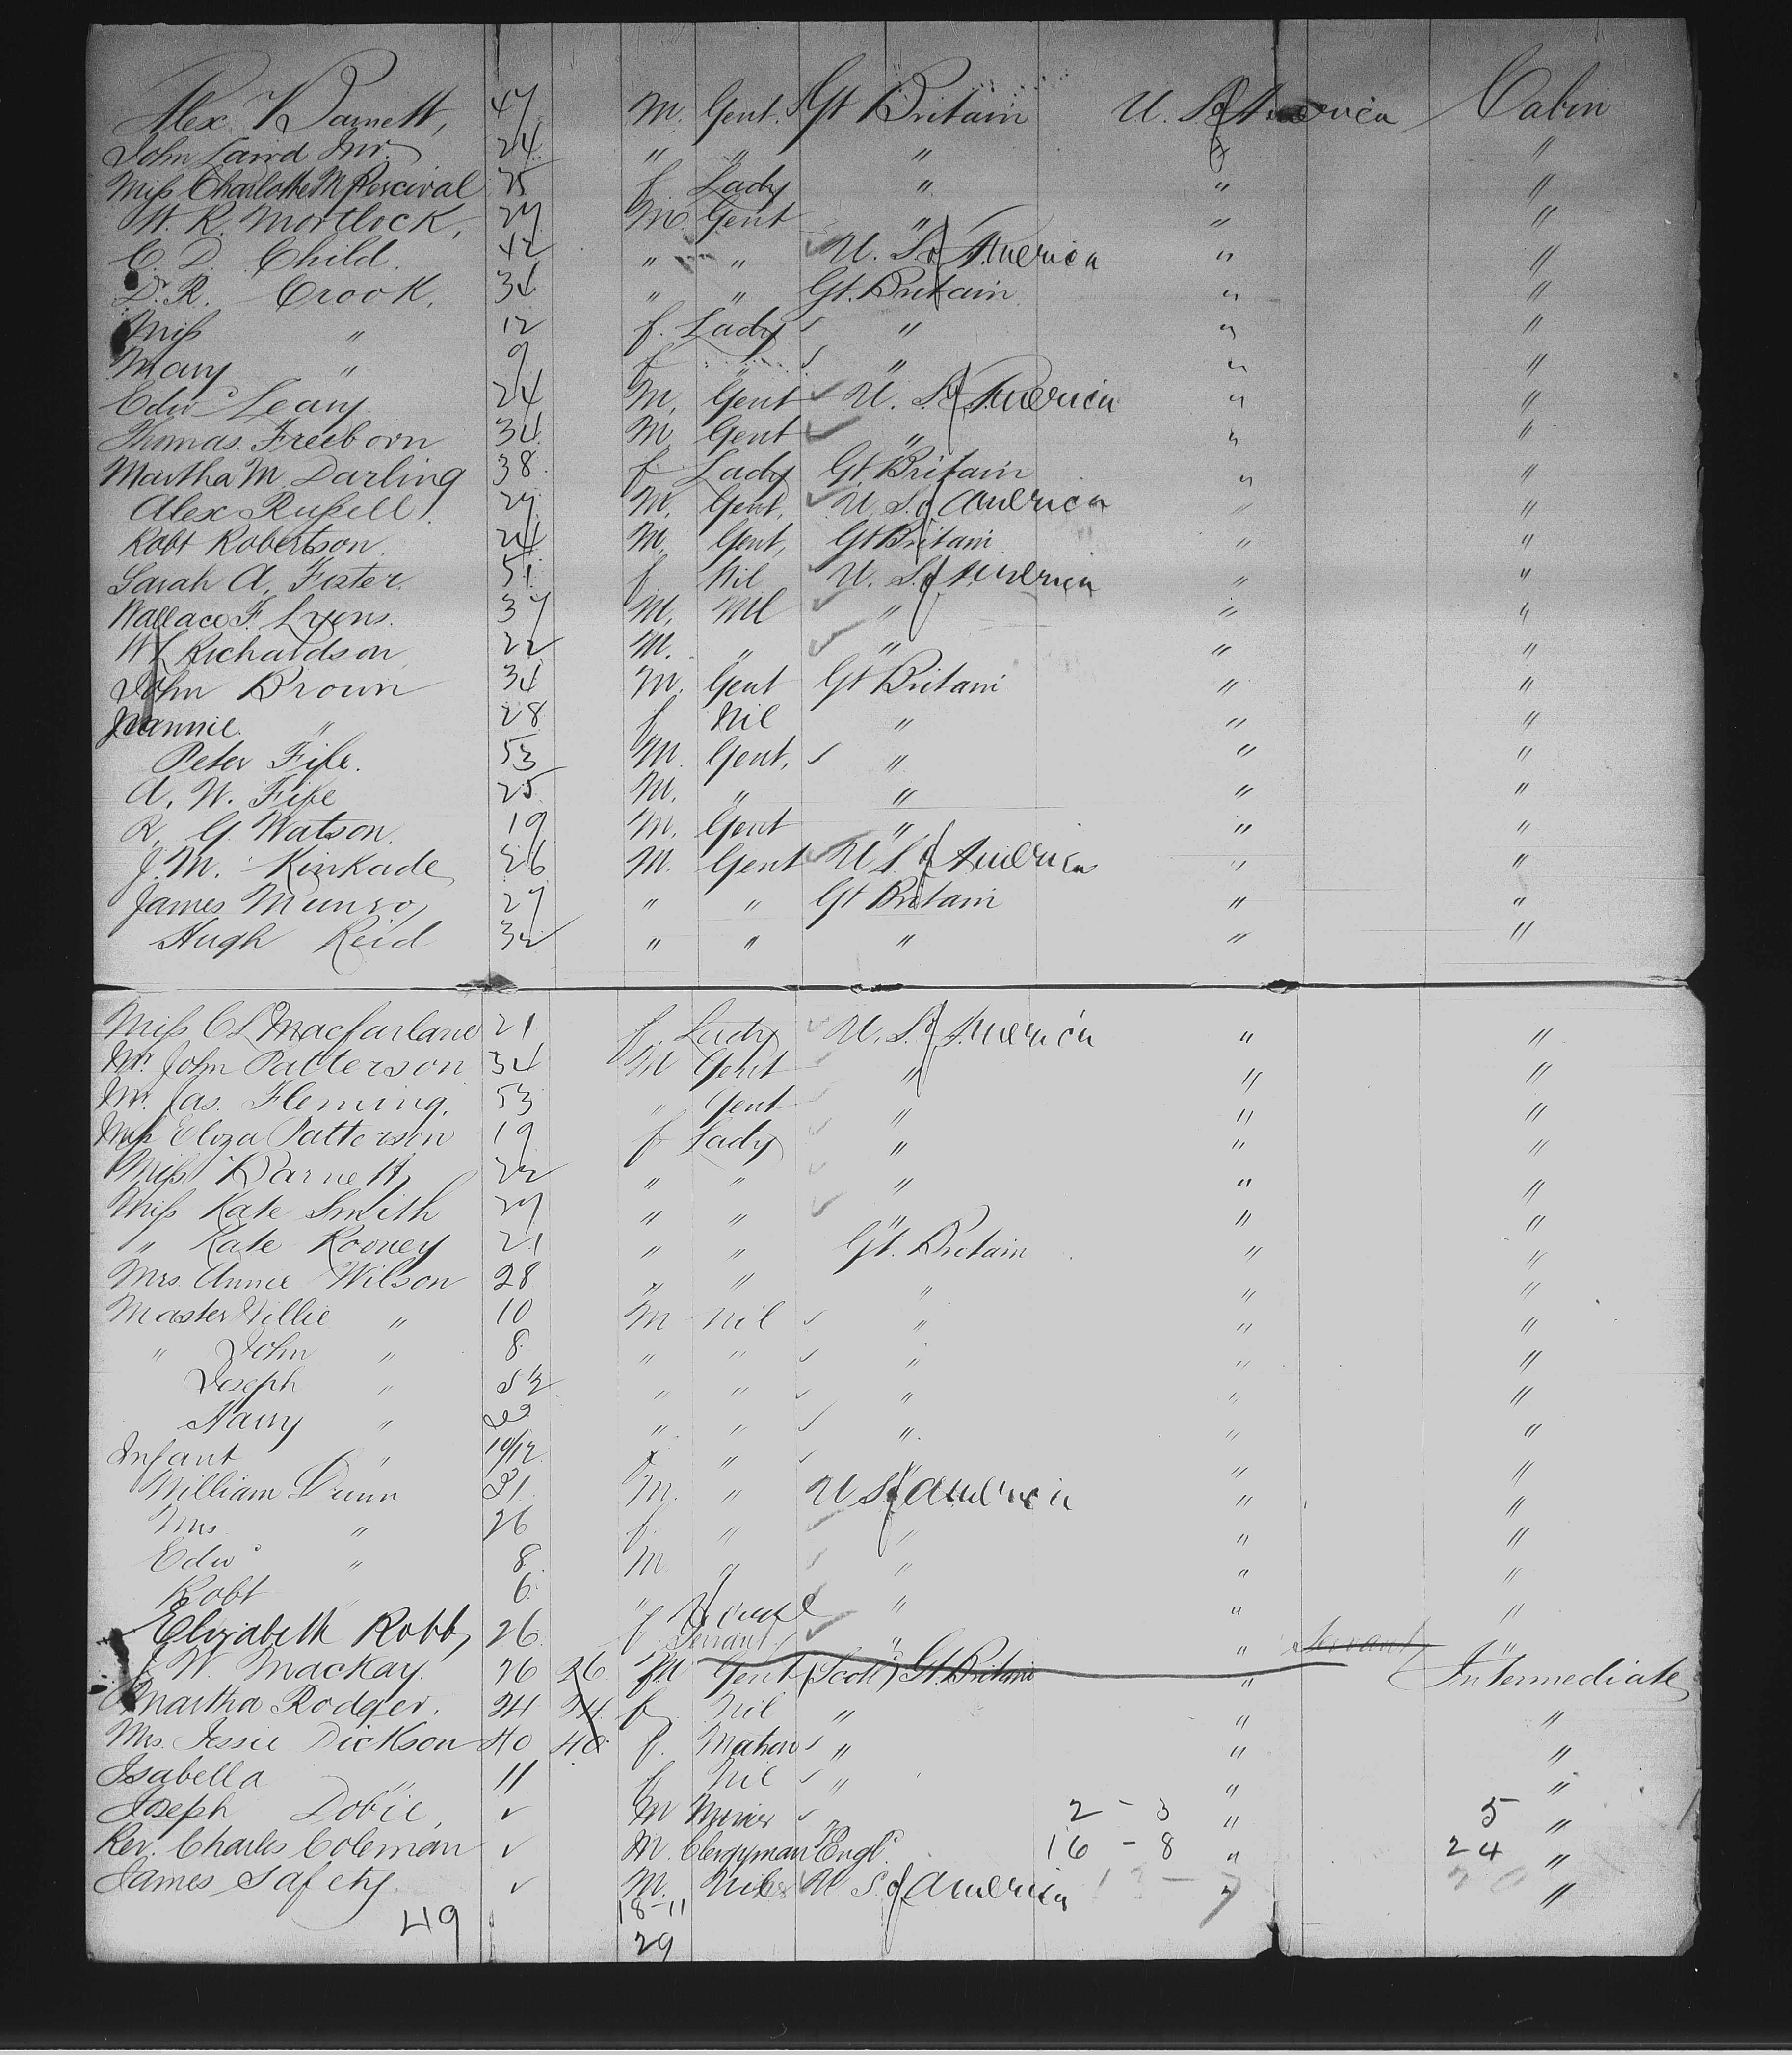 Alex Barnett, 47 M. Gent. Gt Britain U. S. of America Cabin
John Laird Jnr. 24 " " " "
Miss Charlotte M Percival 25 f Lady " " "
W. R. Mortlock, 27 M. Gent " " "
C. D. Child. 42 " " U. S. of America " "
D. R. Crook, 34 " " Gt. Britain " "
Miss " 12 f. Lady " " "
Mary " 9 f " " " "
Edwd Leary 24 M. Gent U. S. of America " "
Thomas Freeborn 34 M. Gent " " "
Martha M. Darling 38 f Lady Gt Britain " "
Alex Russell 27 M. Gent. U. S. of America " "
Robt Robertson 24 M. Gent, Gt Britain " "
Sarah A. Foster 51 f Nil U. S. of America " "
Wallace F. Lyons. 37 M. Nil " " "
W L Richardson 22 M. " " " "
John Brown 34 M. Gent Gt Britain " "
Jeannie " 28 f Nil " " "
Peter Fife. 53 M. Gent. " " "
A. W. Fife 25 M. " " " "
R. G. Watson. 19 M. Gent " " "
J. M. Kinkade 26 M. Gent U S. of America " "
James Munro, 27 " " Gt Britain " "
Hugh Reid 32 " " " " "
Miss C L Macfarlane 21 f Lady U. S. of America " "
Mr. John Patterson 34 M Gent " " "
Mr. Jas. Fleming. 53 " Gent " " "
Miss Eliza Patterson 19 f Lady " " "
Miss Barnett 22 " " " " "
Miss Kate Smith 27 " " " " "
" Kate Rooney 21 " " Gt. Britain " "
Mrs. Annie Wilson 28 " " " " "
Master Willie " 10 M Nil " " "
" John " 8 " " " " "
Joseph " " " " " "
Harry " " " " " "
Infant " 10/12 f " " " "
William Dunn 31 M. " U S. of America " "
Mrs " 26 f " " " "
Edwd " 8 M " " " "
Robt " 6 " " " "
Elizabeth Robb, 26 f Servant " " Servant "
J. W. Mackay. 26 26 M Gent (Scotl) Gt. Britain " Intermediate
Martha Rodger. 24 24 f Nil " " "
Mrs. Jessie Dickson 40 40 f. Matron " " "
Isabella " 11 f Nil " " "
Joseph Dobie, ✓ M Miner " 2 - 3 " 5 "
Rev. Charles Coleman ✓ M. Clergyman Engld. 16 - 8 " 24 "
James Safety ✓ M. U S. of America 13 - 7 " 20 "
49 18-11
29